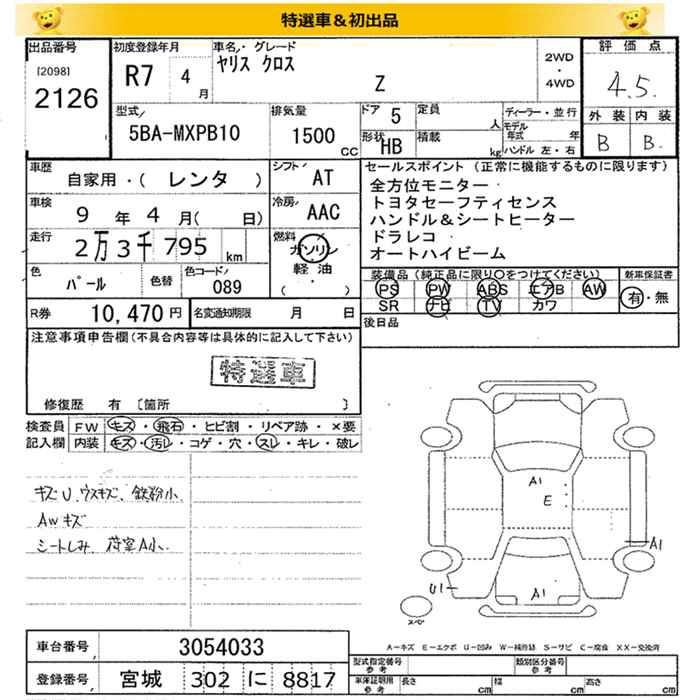 特選車＆初出品
出品番号
[2098]
2126
初度登録年月
R7 4月
車名・グレード
ヤリス クロス
Z
2WD
・
4WD
評価点
4.5
外装 内装
B B
型式
5BA-MXPB10
排気量
1500 CC
ドア 5 定員 人
形状 HB 積載 kg
ディーラー・並行
モデル年式 年
ハンドル 左・右
車歴
自家用・( レンタ )
シフト AT
車検
9年 4月( 日)
冷房 AAC
走行
2万3千795km
燃料
ガソリン
軽油
( )
色 パール 色替 色コード 089
R券 10,470円 名変通知期限 月 日
セールスポイント (正常に機能するものに限ります)
全方位モニター
トヨタセーフティセンス
ハンドル＆シートヒーター
ドラレコ
オートハイビーム
装備品 (純正品に限り○をつけてください) 新車保証書
PS PW ABS エアB AW
SR ナビ TV カワ
有・無
後日品
注意事項申告欄(不具合内容等は具体的に記入して下さい)
特選車
修復歴 有 〔箇所 〕
検査員記入欄
FW キズ・飛石・ヒビ割・リペア跡・×要
内装 キズ・汚レ・コゲ・穴・スレ・キレ・破レ
キズU、ウスキズ、鉄粉小
AWキズ
シートしみ、荷室A小
A1
E
A1
U1
A1
スペア
A-キズ E-エクボ U-凹み W-補修跡 S-サビ C-腐食 XX-交換済
車台番号 3054033
登録番号 宮城 302 に 8817
型式指定番号 参考 類別区分番号 参考
車庫証明用 参考 長さ cm 幅 cm 高さ cm